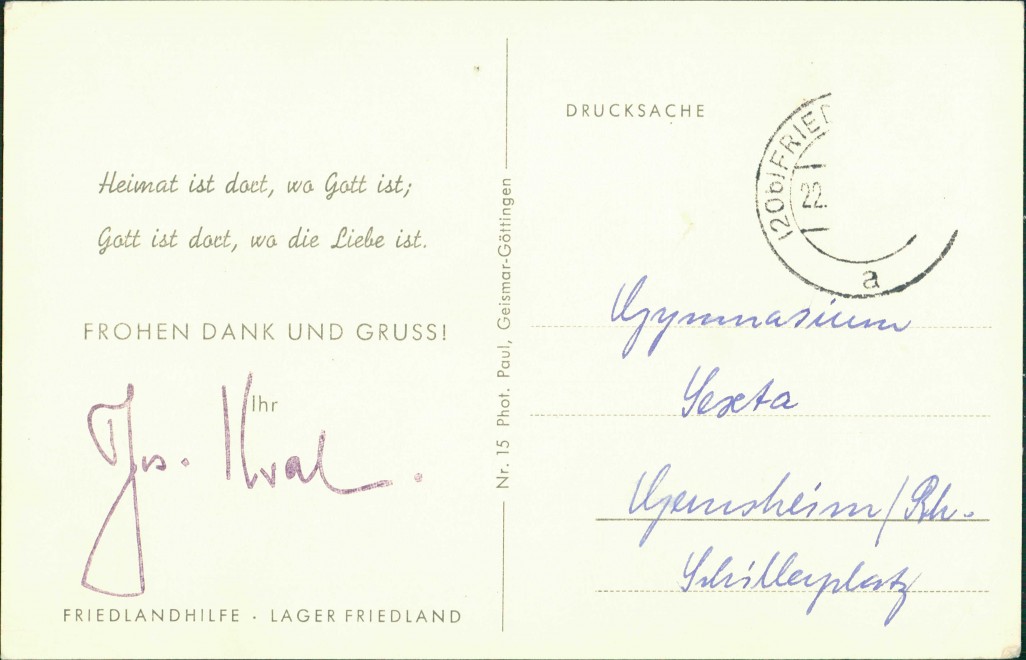 Heimat ist dort, wo Gott ist;
Gott ist dort, wo die Liebe ist.
FROHEN DANK UND GRUSS!
Ihr
Jos. Kral.
FRIEDLANDHILFE · LAGER FRIEDLAND
Nr. 15 Phot. Paul, Geismar-Göttingen
DRUCKSACHE
(20b) FRIED
22.
a
Gymnasium
Sexta
Gernsheim/Rh.
Schillerplatz